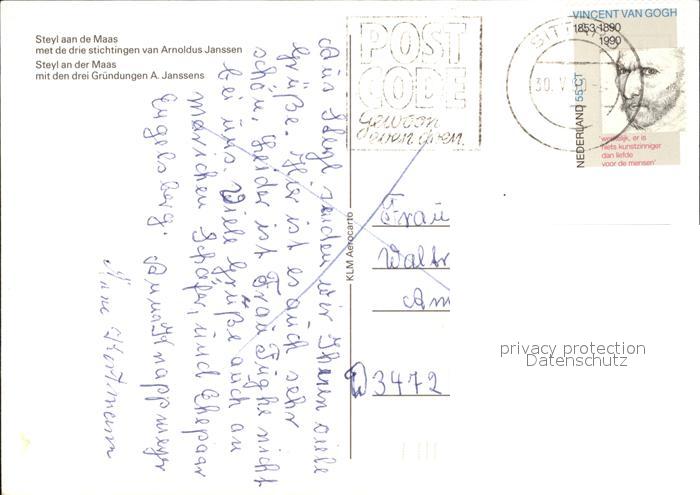 Steyl aan de Maas
met de drie stichtingen van Arnoldus Janssen
Steyl an der Maas
mit den drei Gründungen A. Janssens
Aus Steyl senden wir Ihnen viele
Grüße. Hier ist es auch sehr
schön. Leider ist Frau Füghe nicht
bei uns. Viele Grüße auch an
Mariechen Schäfer, und Ehepaar
Engelsberg. Anna Knappmeyer
Änne Hortmann
KLM Aerocarto
POST
CODE
gewoon
even doen.
SITTARD
30. V
VINCENT VAN GOGH
1853-1890
1990
NEDERLAND 55 CT
'werkelijk, er is
niets kunstzinniger
dan liefde
voor de mensen'
Frau
Waltr
Am
D 3472
privacy protection
Datenschutz